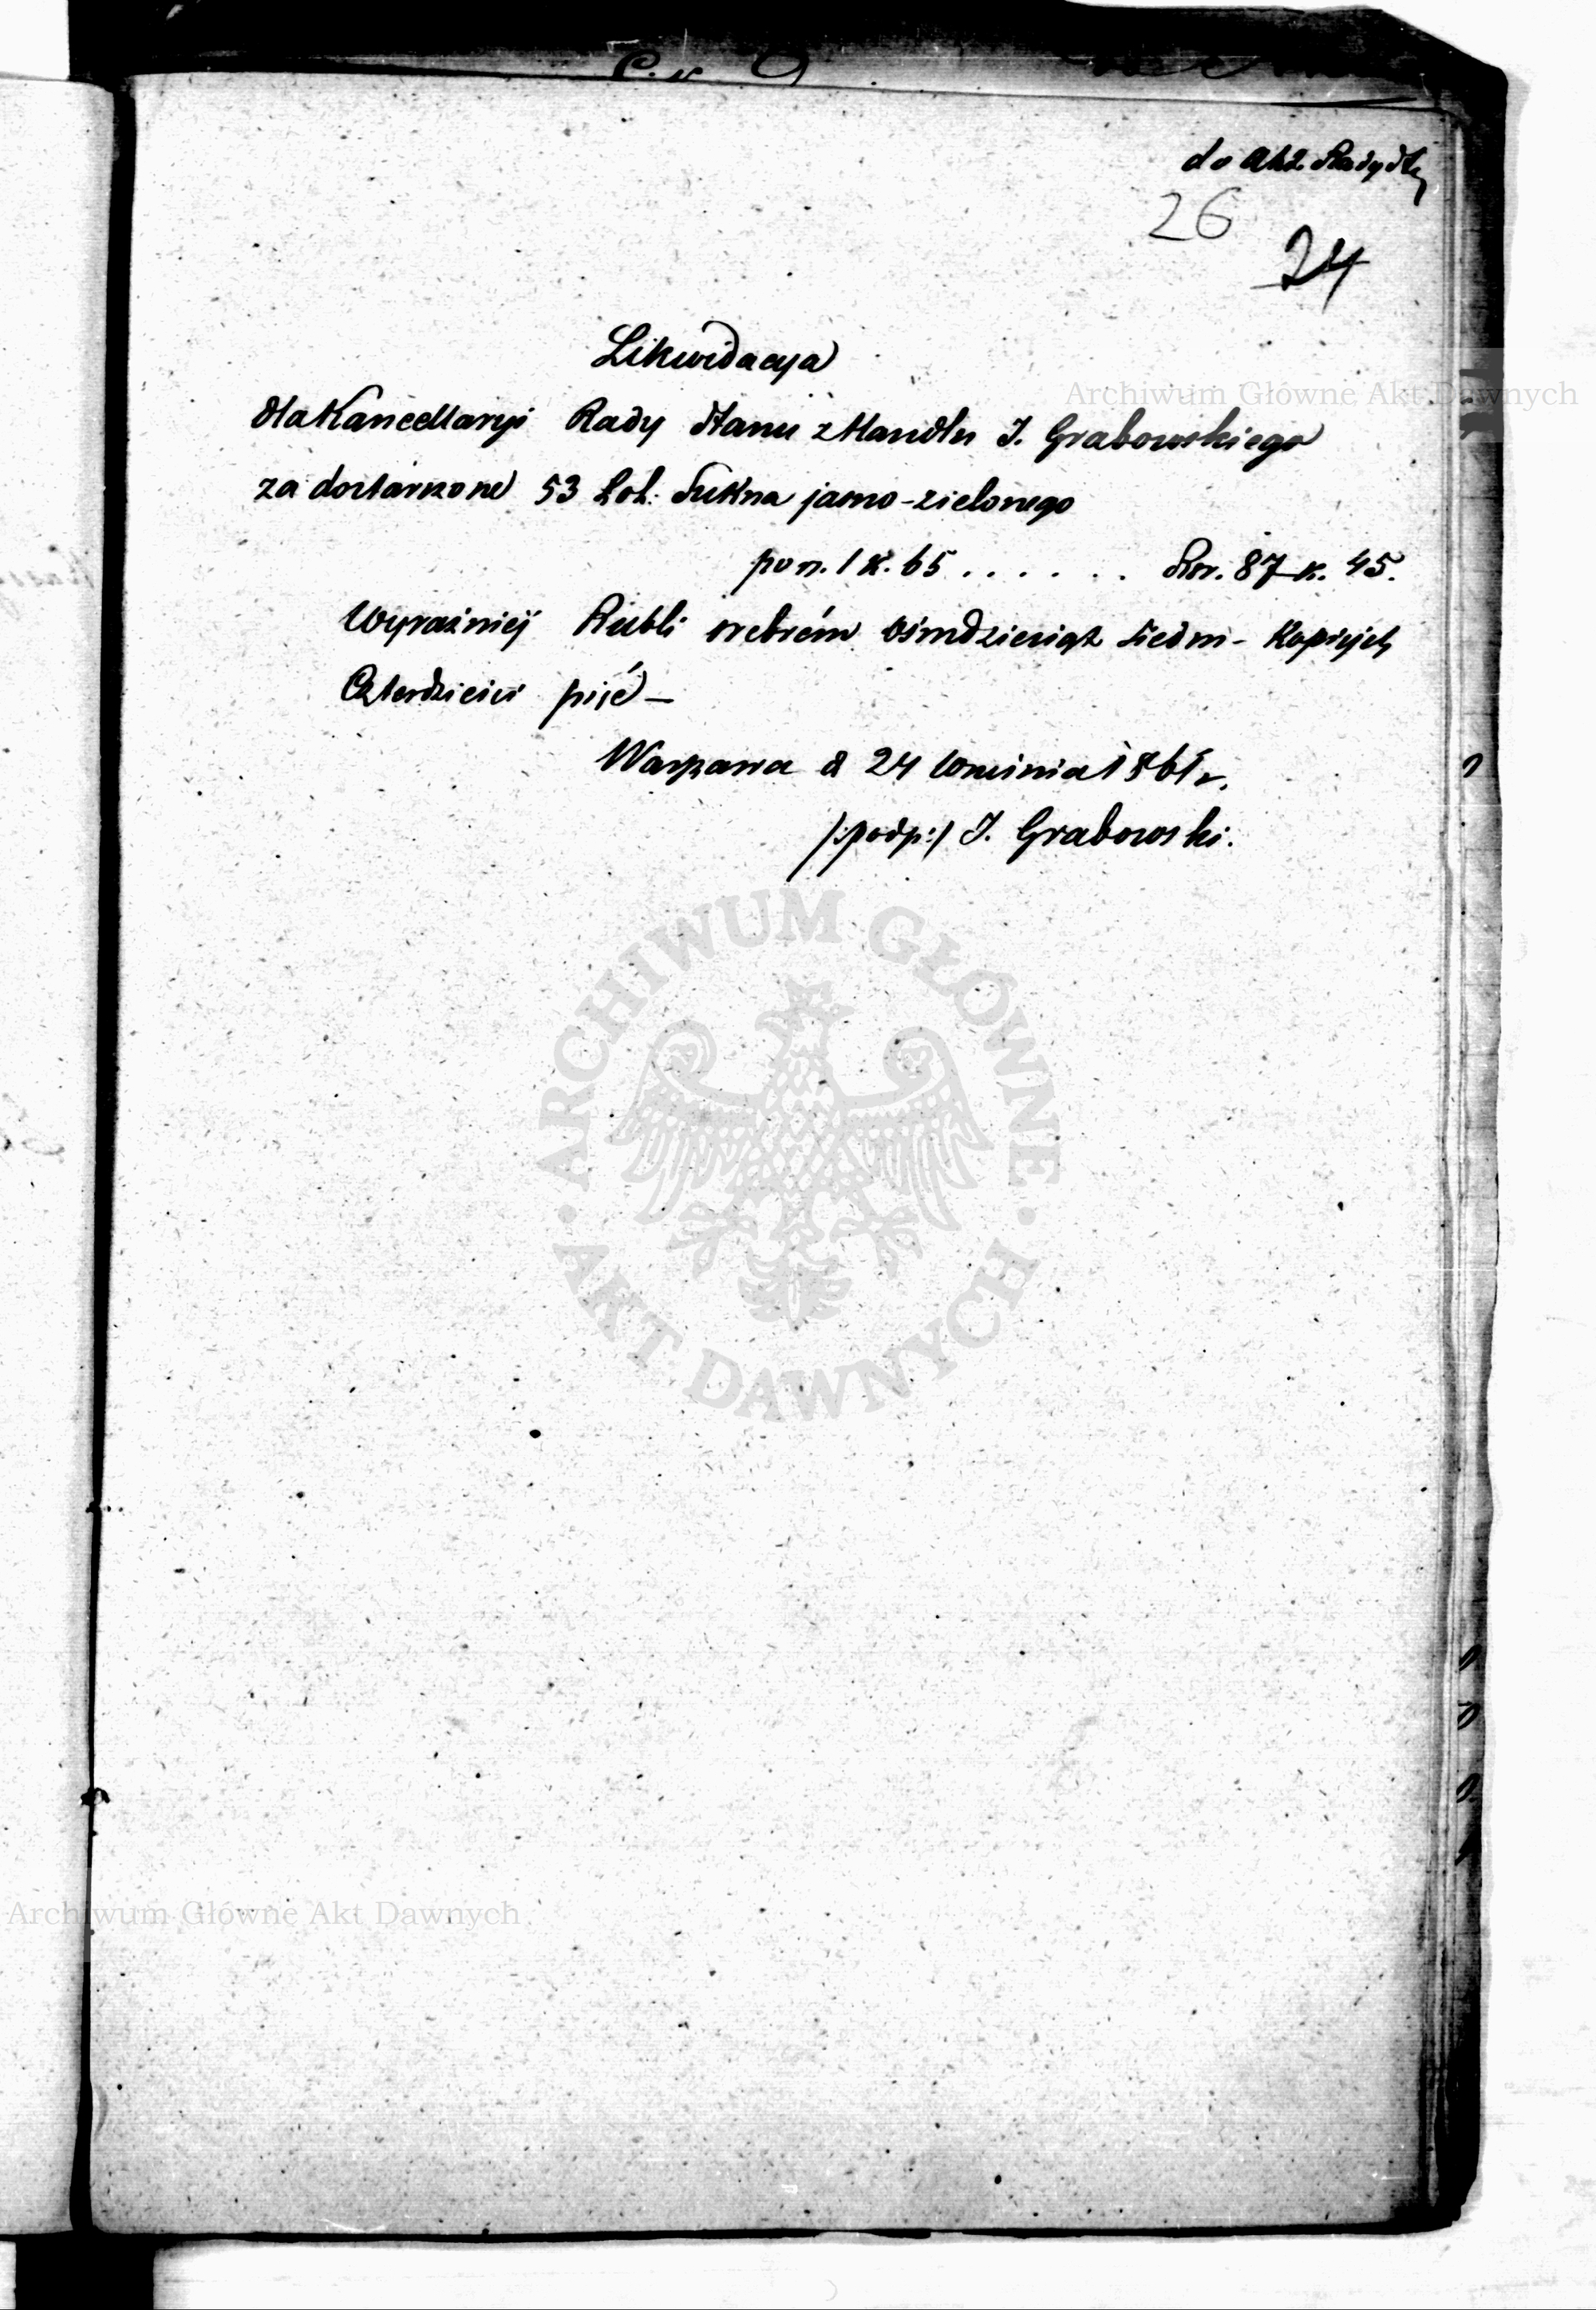 do Akt. Rady St.
26
24
Likwidacya
dla Kancellaryi Rady Stanu z Handlu J. Grabowskiego
za dostarczone 53 Łok: Sukna jasno-zielonego
po rs. 1 k. 65 . . . . . . Rsr. 87 k. 45.
Wyraźniej Rubli srebrem ośmdziesiąt siedm - Kopiejek
Czterdzieści pięć -
Warszawa d 24 1861 r.
/:podp:/ J. Grabowski.
Archiwum Główne Akt Dawnych
ARCHIWUM GŁÓWNE
AKT DAWNYCH
Archiwum Główne Akt Dawnych